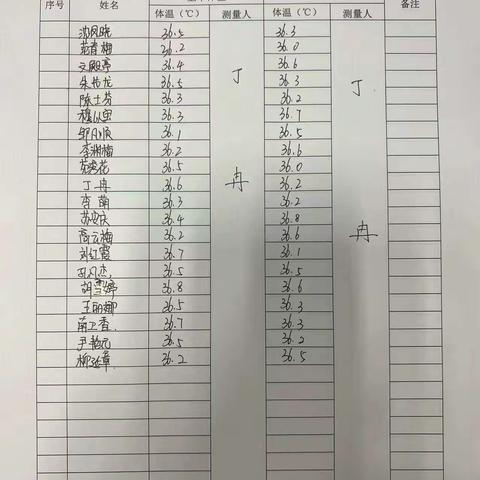 序号 姓名 体温（℃） 测量人 体温（℃） 测量人 备注
沈凤晓 36.5 36.3
范春梅 36.2 36.0
文殿亭 36.4 36.6
朱传龙 36.5 丁 36.3 丁
陈士芬 36.3 36.2
穆以虫 36.3 36.7
邹凡顺 36.1 36.5
李湘梅 36.2 36.6
花 36.5 36.0
丁冉 36.6 冉 36.2
李南 36.3 36.2
苏安庆 36.4 36.8
高云梅 36.2 36.6 冉
刘红霞 36.7 36.1
孔凡杰 36.5 36.5
胡雪婷 36.8 36.6
王丽娜 36.5 36.3
南卫香 36.7 36.3
尹元 36.5 36.2
柳章 36.2 36.5